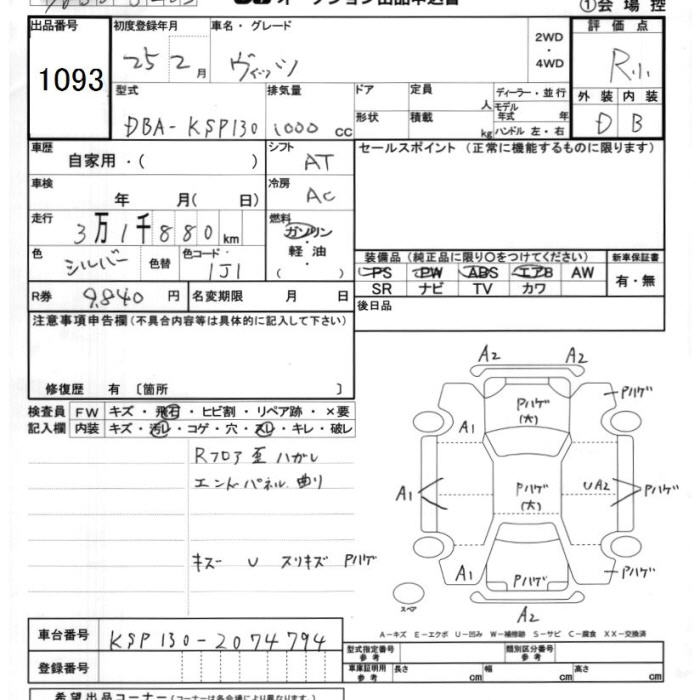 ①会 場 控
出品番号
1093
初度登録年月
25 2 月
車名・グレード
ヴィッツ
2WD
・
4WD
評 価 点
R
外 装 内 装
D B
型式
DBA-KSP130
排気量
1000 cc
ドア
形状
定員 人
積載 kg
ディーラー・並行
モデル年式 年
ハンドル 左・右
車歴
自家用・( )
シフト
AT
セールスポイント (正常に機能するものに限ります)
車検
年 月( 日)
冷房
AC
走行
3万1千880 km
燃料
ガソリン
軽 油
( ・ )
色
シルバー
色替
色コード
1J1
装備品 (純正品に限り○をつけてください)
PS PW ABS エアB AW
SR ナビ TV カワ
新車保証書
有・無
R券
9,840 円
名変期限 月 日
後日品
注意事項申告欄 (不具合内容等は具体的に記入して下さい)
修復歴 有 〔箇所 〕
検査員
記入欄
FW キズ・飛石・ヒビ割・リペア跡・×要
内装 キズ・汚レ・コゲ・穴・スレ・キレ・破レ
Rフロア 歪 ハガレ
エンドパネル 曲り
キズー U スリキズ Pハゲ
A2 A2
Pハゲ
Pハゲ
(大)
A1
A1
Pハゲ
(大)
UA2
Pハゲ
A1
Pハゲ
Pハゲ
スペア
A2
A−キズ E−エクボ U−凹み W−補修跡 S−サビ C−腐食 XX−交換済
車台番号
KSP130-2074794
登録番号
型式指定番号
参 考
類別区分番号
参 考
車庫証明用
参 考
長さ cm
幅 cm
高さ cm
希望出品コーナー (コーナーは各会場により異なります)